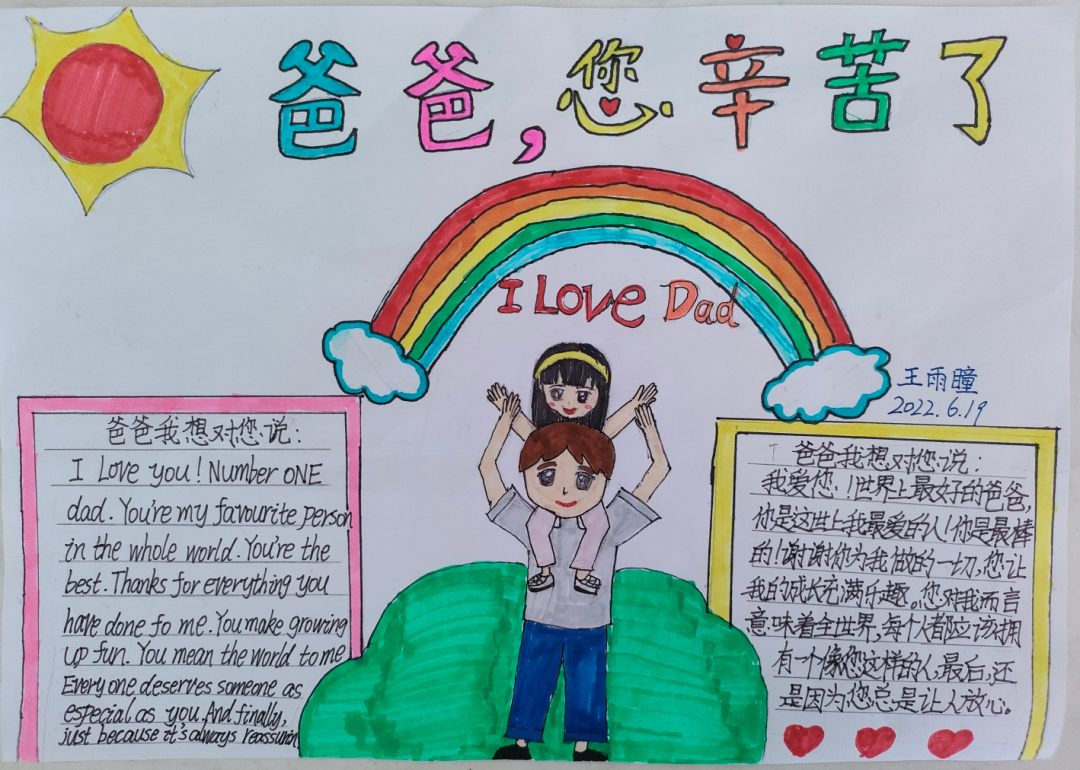 爸爸,您辛苦了
I Love Dad
王雨瞳
2022.6.19
爸爸我想对您说:
I Love you! Number ONE
dad. You're my favourite person
in the whole world. You're the
best. Thanks for everything you
have done fo me. You make growing
up fun. You mean the world to me
Every one deserves someone as
especial as you. And finally,
just because it's always reassurin
爸爸我想对您说:
我爱您!世界上最好的爸爸,
你是这世上我最爱的人!你是最棒
的!谢谢你为我做的一切,您让
我的成长充满乐趣。您对我而言
意味着全世界,每个人都应该拥
有一个像您这样的人,最后,还
是因为您总是让人放心。